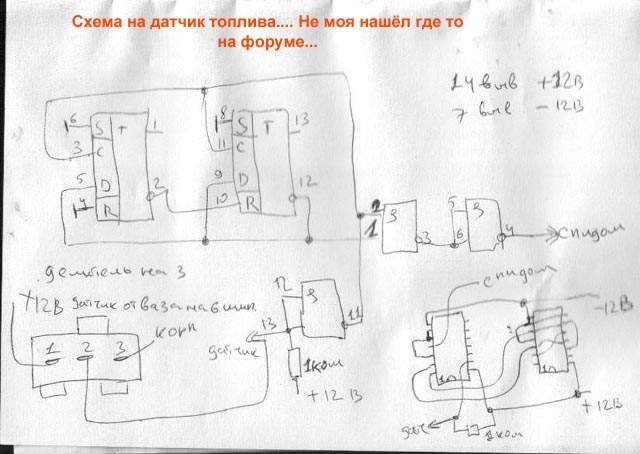 Схема на датчик топлива.... Не моя нашёл где то
на форуме...
14 выв +12В
7 выв -12В
6 S T 1
3 C
5 D 2
4 R
8 S T 13
11 C
9 D
10 R 12
2
1
3
5
6
4
спидом
делитель на 3
+12В датчик от ваза
1 2 3
корп
12
13
11
датчик
1ком
+12В
спидом
-12В
+12В
1ком